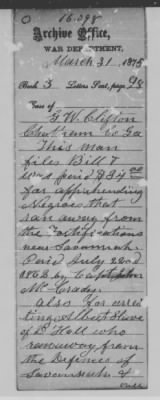 16.298
Archive Office,
WAR DEPARTMENT,
March 31, 1875
Book 3 Letters Sent, page 98
Case of
G. W. Clifton
Chatham Co Ga
This man
files Bill &
was paid $34 00
for apprehending
Negroes that
ran away from
the Fortifications
near Savannah.
Paid July 22nd
1863 by Capt John
McCrady.
also for arres
ting Albert Slave
of Dr Hall who
ran away from
the Defences of
Savannah &